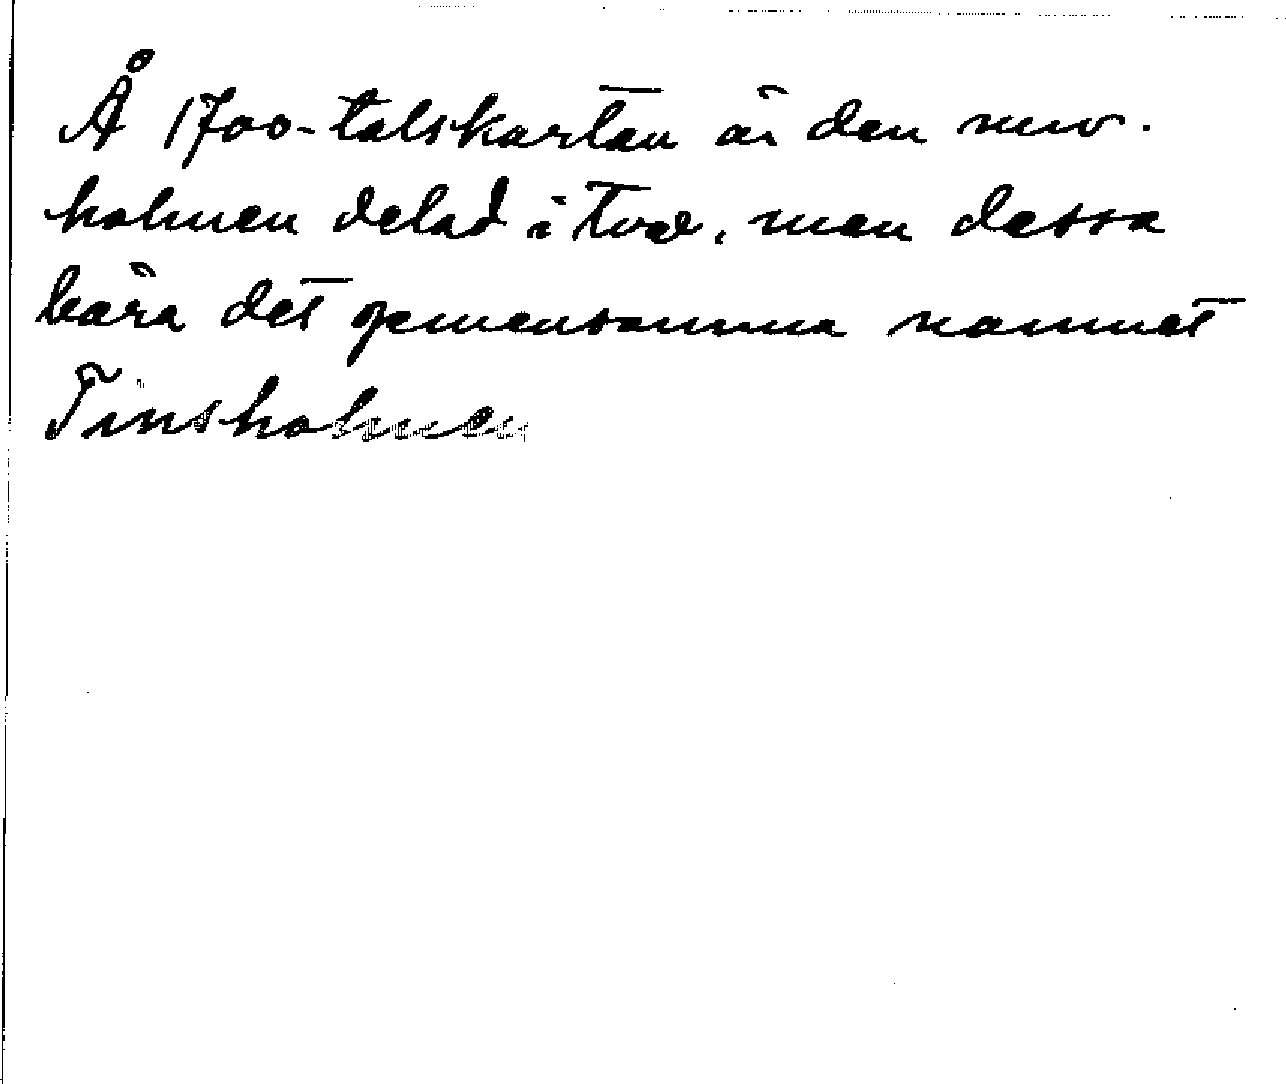 Å 1700-talskartan är den nuv.
holmen delad i två, men dessa
bära det gemensamma namnet
Tinsholmen